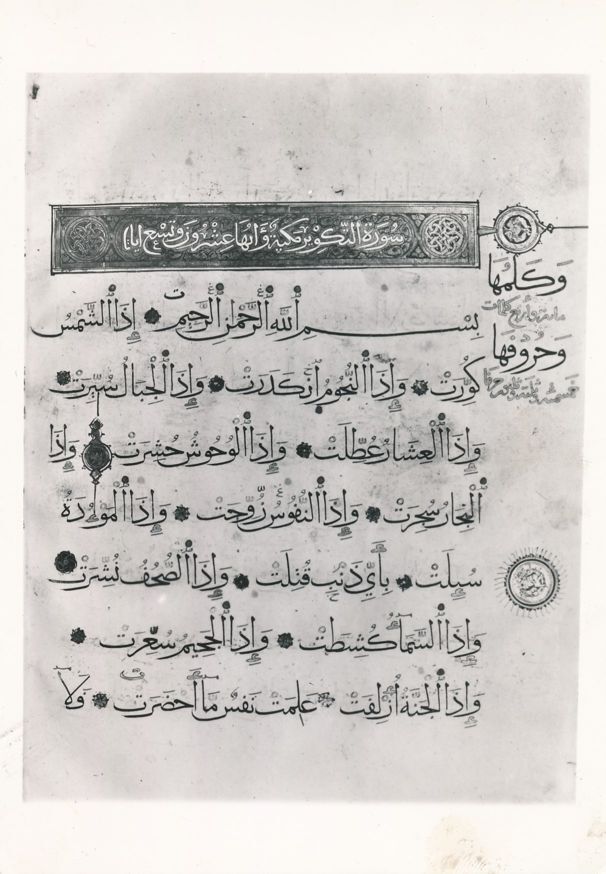 سورة التكوير مكية وآيها عشرون وتسع آيات
وكلمها
مائة وأربع كلمات
وحروفها
بسم الله الرحمن الرحيم إذا الشمس
كورت وإذا النجوم انكدرت وإذا الجبال سيرت
وإذا العشار عطلت وإذا الوحوش حشرت وإذا
البحار سجرت وإذا النفوس زوجت وإذا الموءدة
سئلت بأي ذنب قتلت وإذا الصحف نشرت
وإذا السماء كشطت وإذا الجحيم سعرت
وإذا الجنة أزلفت علمت نفس ما أحضرت ولا